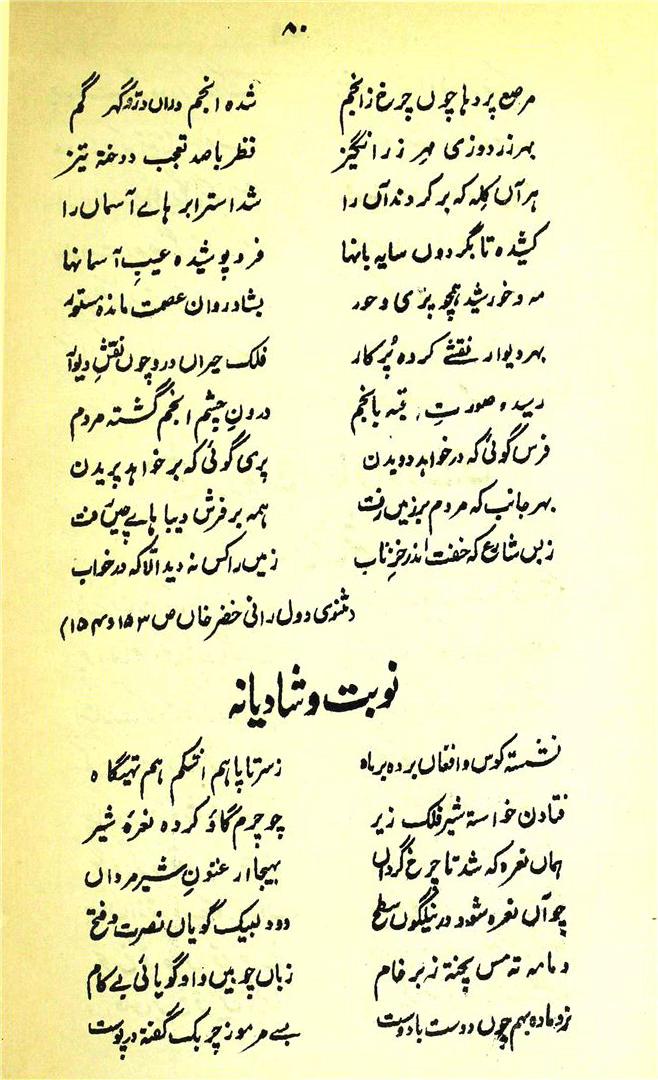 ۸۰
مرصع پردہا چوں چرخ ز انجم شدہ انجم دراں در و گہر گم
بہر زردوزی مہر زر انگیز نظر با صد تعجب دوختہ تیز
ہر آں کلہ کہ بر کردند آں را شد استر ابر ہاے آسماں را
کشیدہ تا بگردوں سایہ بانہا فرو پوشیدہ عیبِ آسمانہا
مہ و خورشید ہمچو پری و حور بشادروان عصمت ماندہ مستور
بہر دیوار نقشے کردہ پُرکار فلک حیراں درو چوں نقشِ دیوار
رسیدہ صورتِ قبہ بانجم درونِ چشم انجم گشتہ مردم
فرس گوئی کہ در خواہد دویدن پری گوئی کہ بر خواہد پریدن
بہر جانب کہ مردم بر زمیں رفت ہمہ بر فرش دیبا ہاے چیں رفت
زبس شارع کہ خفت اندر خز ناب زمیں را کس نہ دید الّا کہ در خواب
(مثنوی دول رانی خضر خاں ص ۱۵۳ و ۱۵۴)
نوبت و شادیانہ
نشستہ کوس و افغاں بردہ بر ماہ ز سر تا پا ہم اشکم ہم تہیگاہ
فتادن خواستہ شیر فلک زیر چو چرم گاؤ کردہ نعرۂ شیر
ہماں نعرہ کہ شد تا چرخ گرداں بہیجا ارغنونِ شیر مرداں
چو آں نعرہ شود در نیلگوں سطح دود لبیک گویاں نصرت و فتح
دمامہ تہ مس پختہ نہ بر خام زباں چوبیں و او گویائی بے کام
نر و مادہ بہم چوں دوست با دوست بسے مرموز چربک گفتہ در پوست